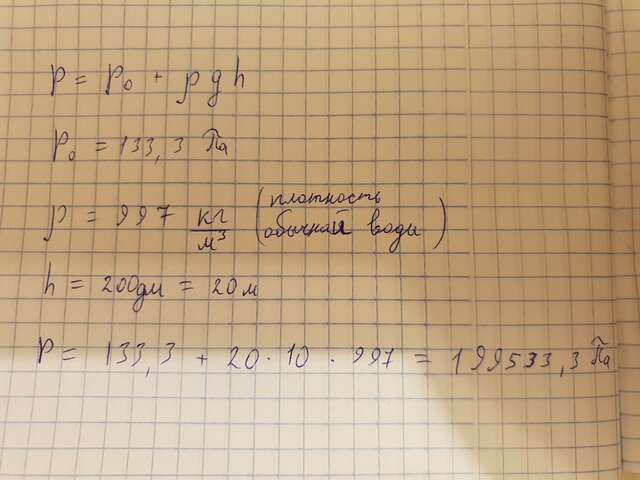 P = P₀ + ρgh
P₀ = 133,3 Па
ρ = 997 кг/м³ (плотность обычной води)
h = 200дм = 20м
P = 133,3 + 20·10·997 = 199533,3 Па